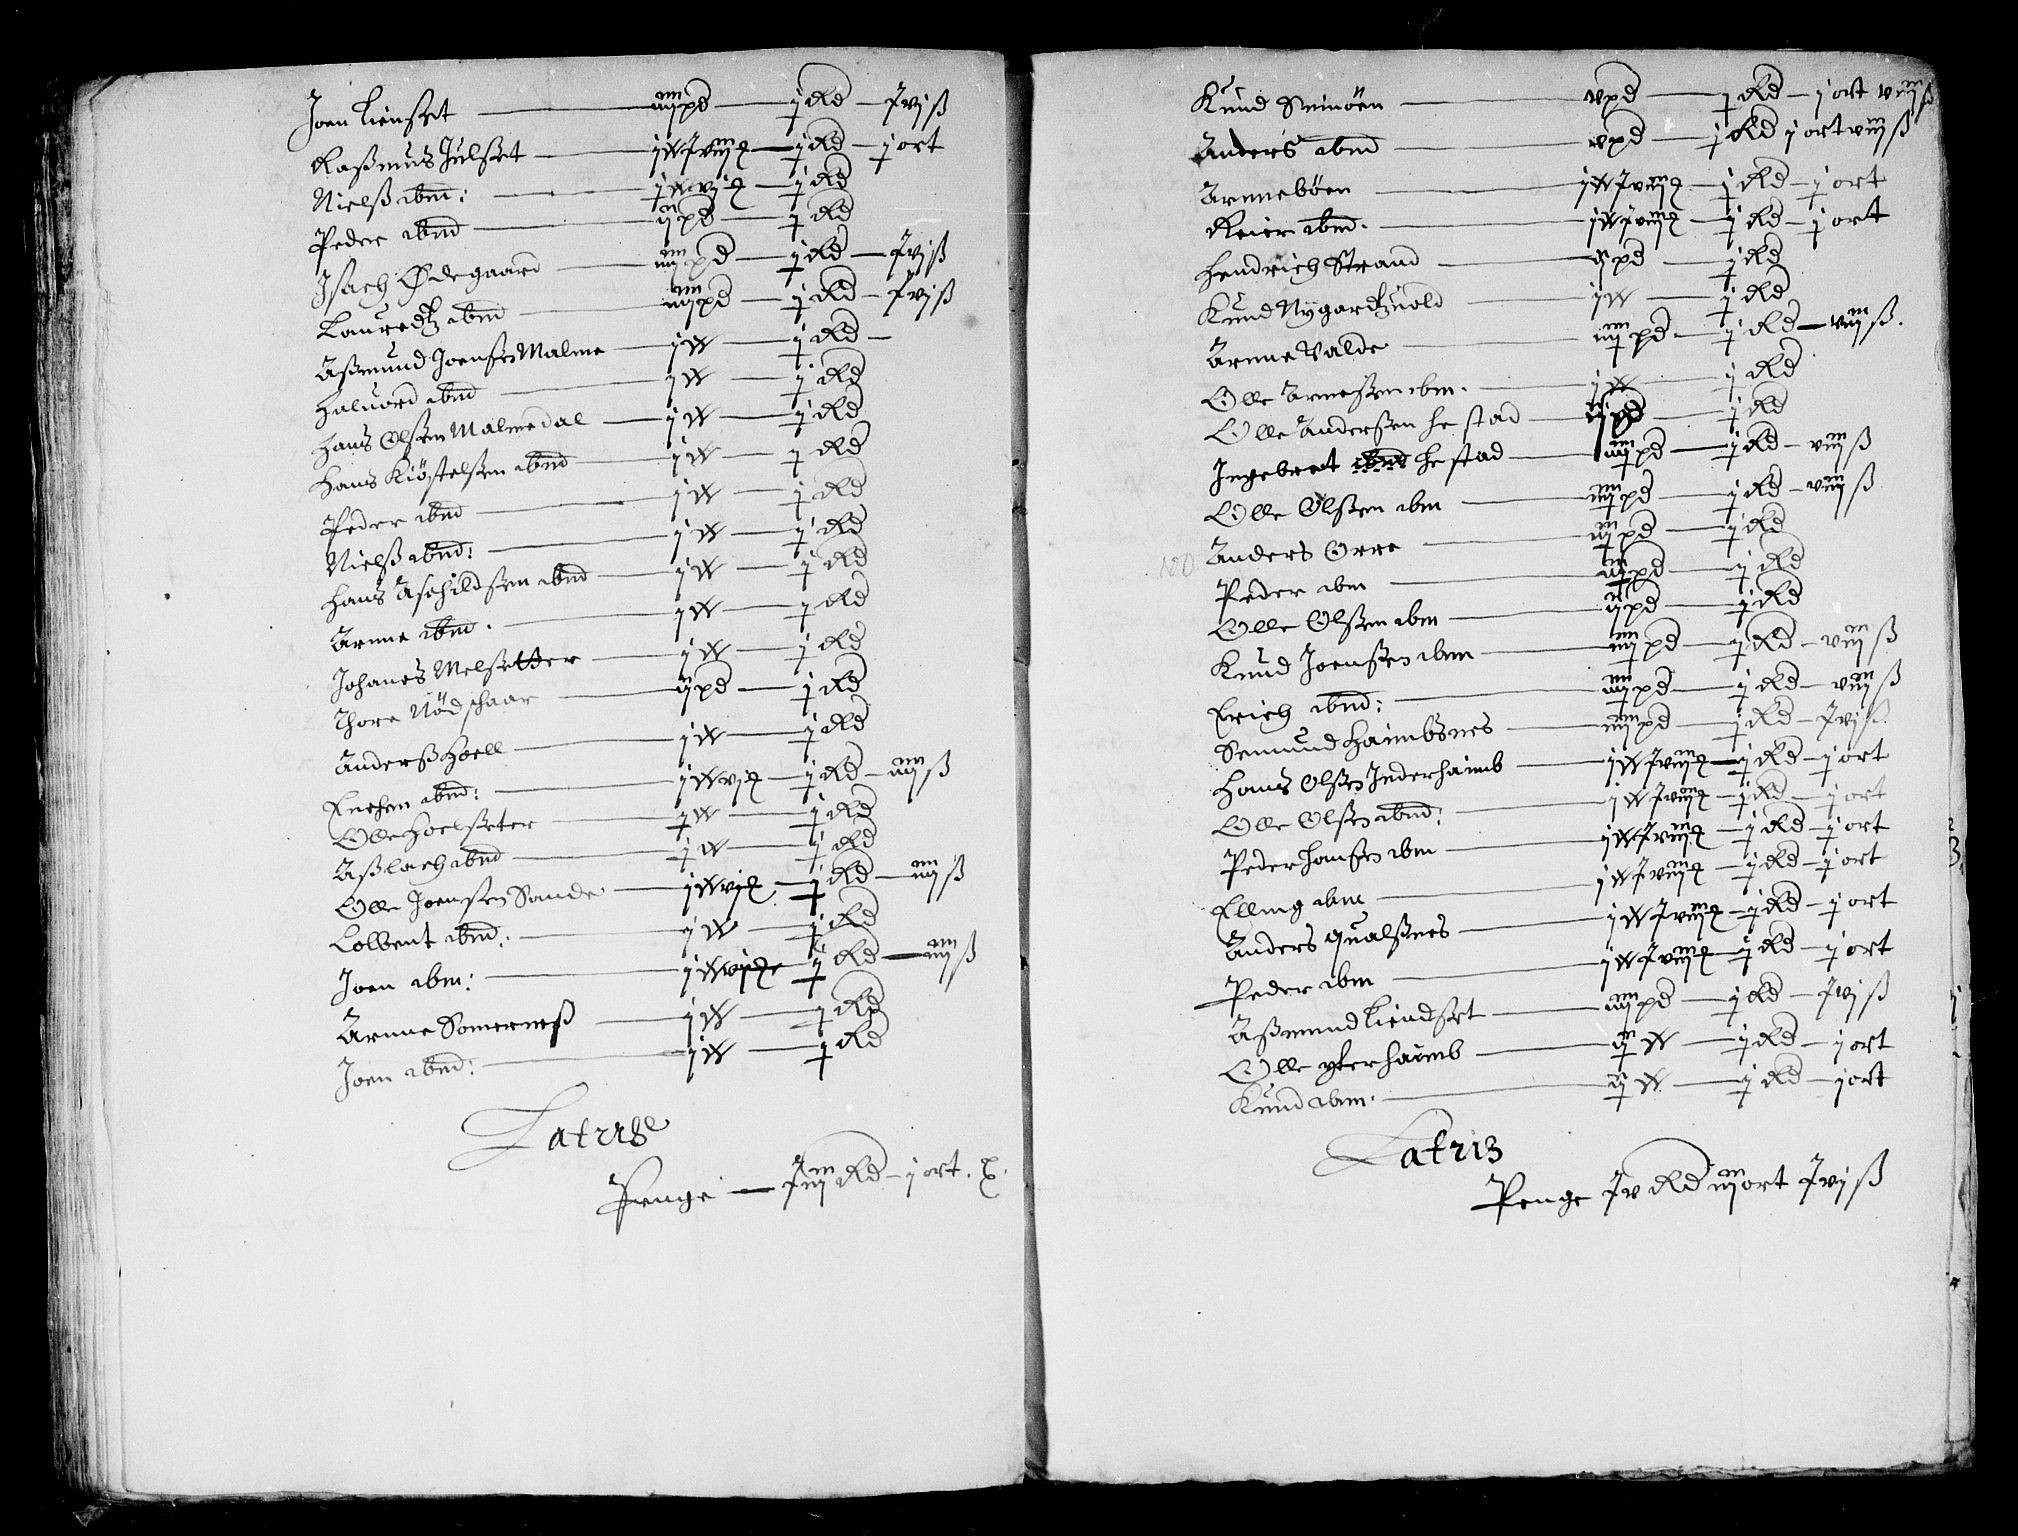 Joen Lienset — iiij pd — j Rd — Jvj ß
Raßmus Julset — j W Jviij — j Rd — j ort
Nielß ibm: — j W vj — j Rd
Peder ibmd — ij pd — j Rd
Jsach Ødegaard — iiij pd — j Rd — Jvj ß
Lauredtz ibmd — iiij pd — j Rd — Jvj ß
Aßmund Joensen Malme — j W — j Rd —
Haluord ibmd — j W — j Rd
Hans Olßen Malmedal — j W — j Rd
Hans Kiøstelßen ibmd — j W — j Rd
Peder ibmd — j W — j Rd
Nielß ibmd: — j W — j Rd
Hans Aschildsen ibmd — j W — j Rd
Arnne ibmd. — j W — j Rd
Johanes Melsetter — j W — j Rd
Thore Nødschaar — ij pd — j Rd
Anderß Hoell — j W — j Rd
ibmd: — j W vj — j Rd — iiij ß
Olle Hoelßeter — j W — j Rd
Aßlach ibmd — j W — j Rd
Olle Joensen Sande — j W vj — j Rd — iiij ß
Lolbent ibmd: — j W — j Rd
Joen ibm: — j W vj — j Rd — iiij ß
Arnne Somerneß — j W — j Rd
Joen ibmd: — j W — j Rd
Latriß
Penge — Jiij Rd — j ort. X.
Knud Sminöen — v pd — j Rd — j ort viij ß
Anders ibmd — v pd — j Rd j ort viij ß
Arnneböen — j W Jviij — j Rd — j ort
Reier ibmd. — j W Jviij — j Rd — j ort
Hendrich Strand — ij pd — j Rd
Knud Nygardtzuold — j W — j Rd
Arnne Valde — iiij pd — j Rd — viij ß.
Olle Arneßen ibm. — j W — j Rd
Olle Anderßen Hestad — pd — j Rd
Ingebret ibmd Hestad — iiij pd — j Rd — viij ß
Olle Olßen ibm — iiij pd — j Rd — viij ß
Anders Orre — iij pd — j Rd
180
Peder ibm — iij pd — j Rd
Olle Olßen ibm — ij pd — j Rd
Knud Joenßen ibm — iiij pd — j Rd — viij ß
Erich ibmd: — iiij pd — j Rd — viij ß
Semund Haimbsnes — iiij pd — j Rd — Jvj ß
Hans Olßen Inderhaimb — j W Jviij — j Rd — j ort
Olle Olßen ibmd: — j W Jviij — j Rd — j ort
Peder Hansen ibm — j W Jviij — j Rd — j ort
Elling ibm — j W Jviij — j Rd — j ort
Anders Qualßnes — j W Jviij — j Rd — j ort
Peder ibm — j W Jviij — j Rd — j ort
Aßmund Liendset — iiij pd — j Rd — Jvj ß
Olle yterhaimb — ij W — j Rd — j ort
Knud ibm. — ij W — j Rd — j ort
Latriß
Penge Jv Rd iij ort Jvj ß